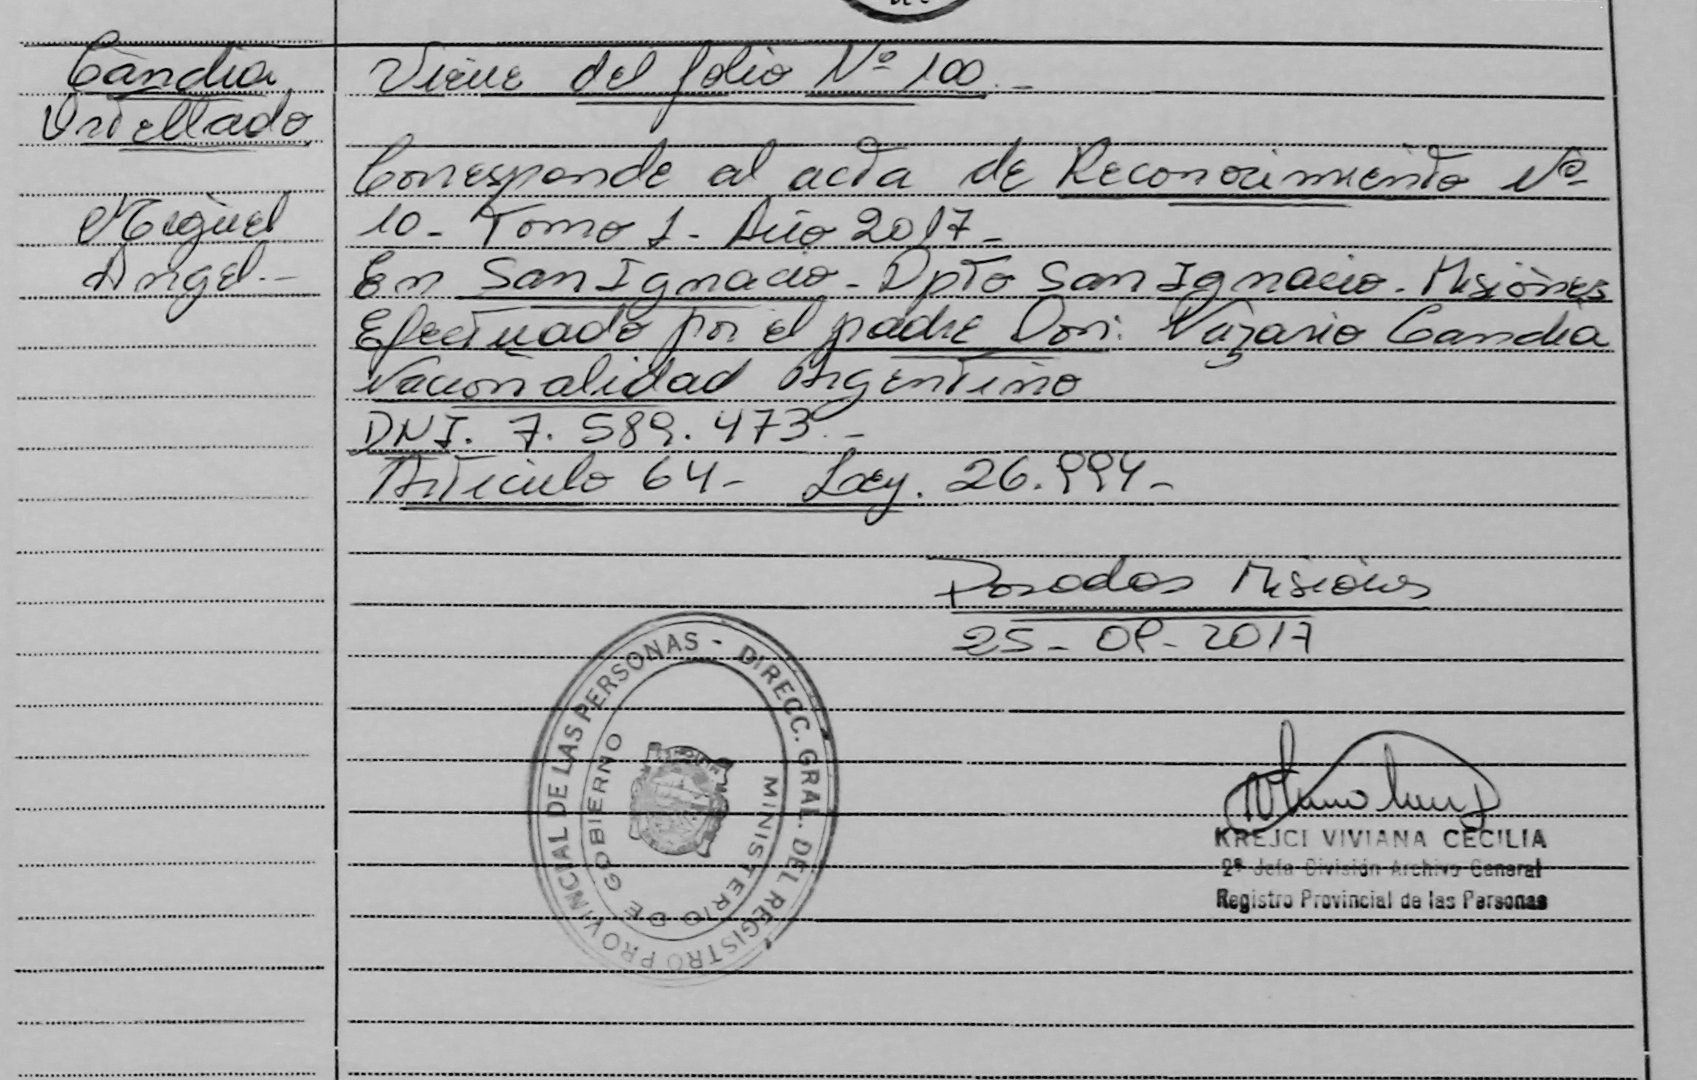 Candia
Ortellado
Miguel
Angel.-
Viene del folio Nº 100.-
Corresponde al acta de Reconocimiento Nº
10- Tomo 1- Año 2017-
En San Ignacio - Dpto San Ignacio. Misiones
Efectuado por el padre Don: Nazario Candia
Nacionalidad Argentino
DNI. 7.589.473.-
Articulo 64- Ley. 26.994-
Posadas Misiones
25-09-2017
DIRECC. GRAL. DEL REGISTRO PROVINCIAL DE LAS PERSONAS -
MINISTERIO DE GOBIERNO
KREJCI VIVIANA CECILIA
2ª Jefa División Archivo General
Registro Provincial de las Personas